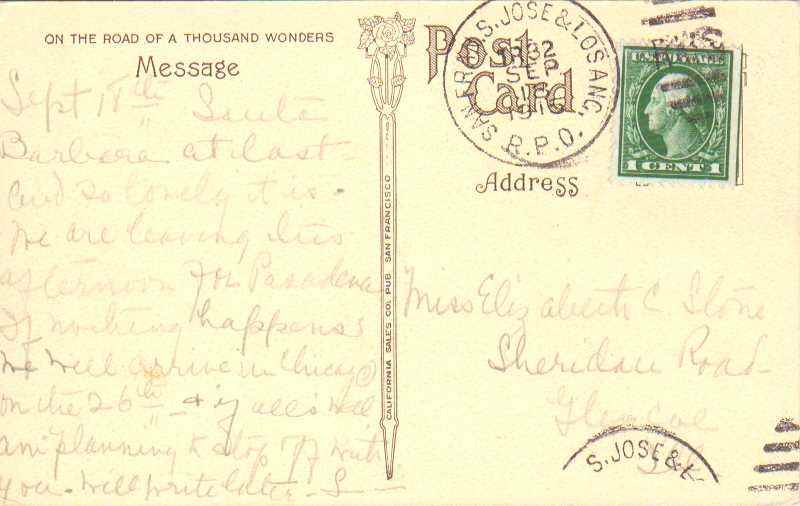 ON THE ROAD OF A THOUSAND WONDERS
Message
Sept 18th Santa
Barbara at last-
and so lovely it is.
We are leaving this
afternoon for Pasadena
If nothing happens
we will arrive in Chicago
on the 26th - & if all is well
am planning to stop off with
you. Will write later - S -
CALIFORNIA SALES CO. PUB. SAN FRANCISCO
Post
Card
SAN FRAN, S. JOSE & LOS ANG.
SEP
R.P.O.
U.S. POSTAGE
1 CENT 1
Address
Miss Elizabeth C. Stone
Sheridan Road
Glencoe
Ill
S. JOSE & L